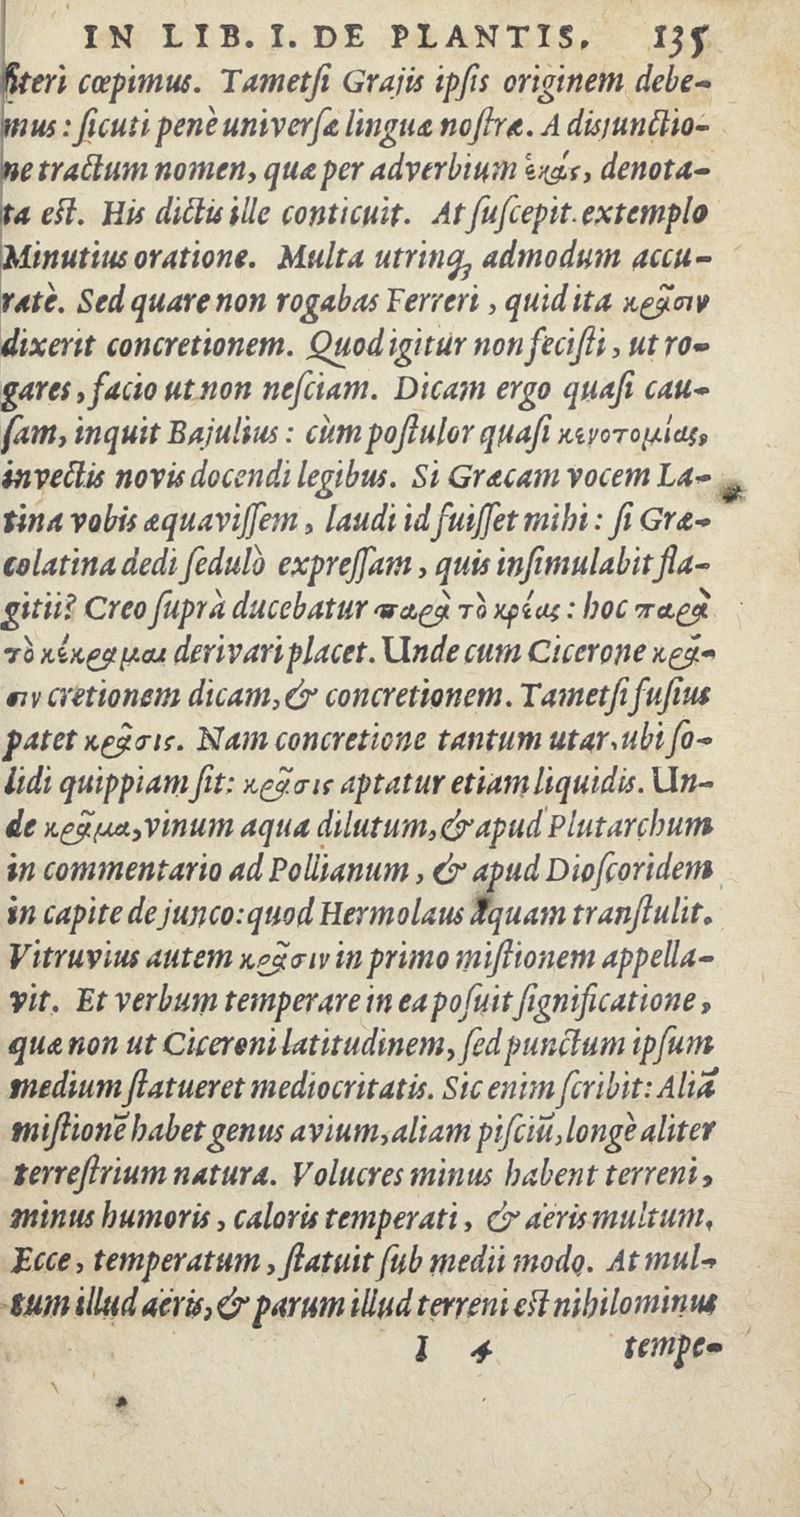 IN LIB. I. DE PLANTIS. 135
fiteri cœpimus. Tametſi Grajis ipſis originem debe-
mus: ſicuti penè univerſæ linguæ noſtræ. A disjunctio-
ne tractum nomen, quæ per adverbium ἑκὰς, denota-
ta eſt. His dictis ille conticuit. At ſuſcepit extemplo
Minutius oratione. Multa utrinq; admodum accu-
ratè. Sed quare non rogabas Ferreri, quid ita κρᾶσιν
dixerit concretionem. Quod igitur non feciſti, ut ro-
gares, facio ut non neſciam. Dicam ergo quaſi cau-
ſam, inquit Bajulius: cùm poſtulor quaſi κενοτομίας,
invectis novis docendi legibus. Si Græcam vocem La-
tina vobis æquaviſſem, laudi id fuiſſet mihi: ſi Græ-
colatina dedi ſedulò expreſſam, quis inſimulabit fla-
gitii? Creo ſuprà ducebatur παρὰ τὸ κρέας: hoc παρὰ
τὸ κέκραμαι derivari placet. Unde cum Cicerone κρᾶ-
σιν cretionem dicam, & concretionem. Tametſi fuſius
patet κρᾶσις. Nam concretione tantum utar, ubi ſo-
lidi quippiam ſit: κρᾶσις aptatur etiam liquidis. Un-
de κρᾶμα, vinum aqua dilutum, & apud Plutarchum
in commentario ad Pollianum, & apud Dioſcoridem
in capite de junco: quod Hermolaus aquam tranſtulit.
Vitruvius autem κρᾶσιν in primo miſtionem appella-
vit. Et verbum temperare in ea poſuit ſignificatione,
quæ non ut Ciceroni latitudinem, ſed punctum ipſum
medium ſtatueret mediocritatis. Sic enim ſcribit: Aliã
miſtionẽ habet genus avium, aliam piſciũ, longè aliter
terreſtrium natura. Volucres minus habent terreni,
minus humoris, caloris temperati, & aëris multum.
Ecce, temperatum, ſtatuit ſub medii modo. At mul-
tum illud aëris, & parum illud terreni eſt nihilominus
I 4 tempe-